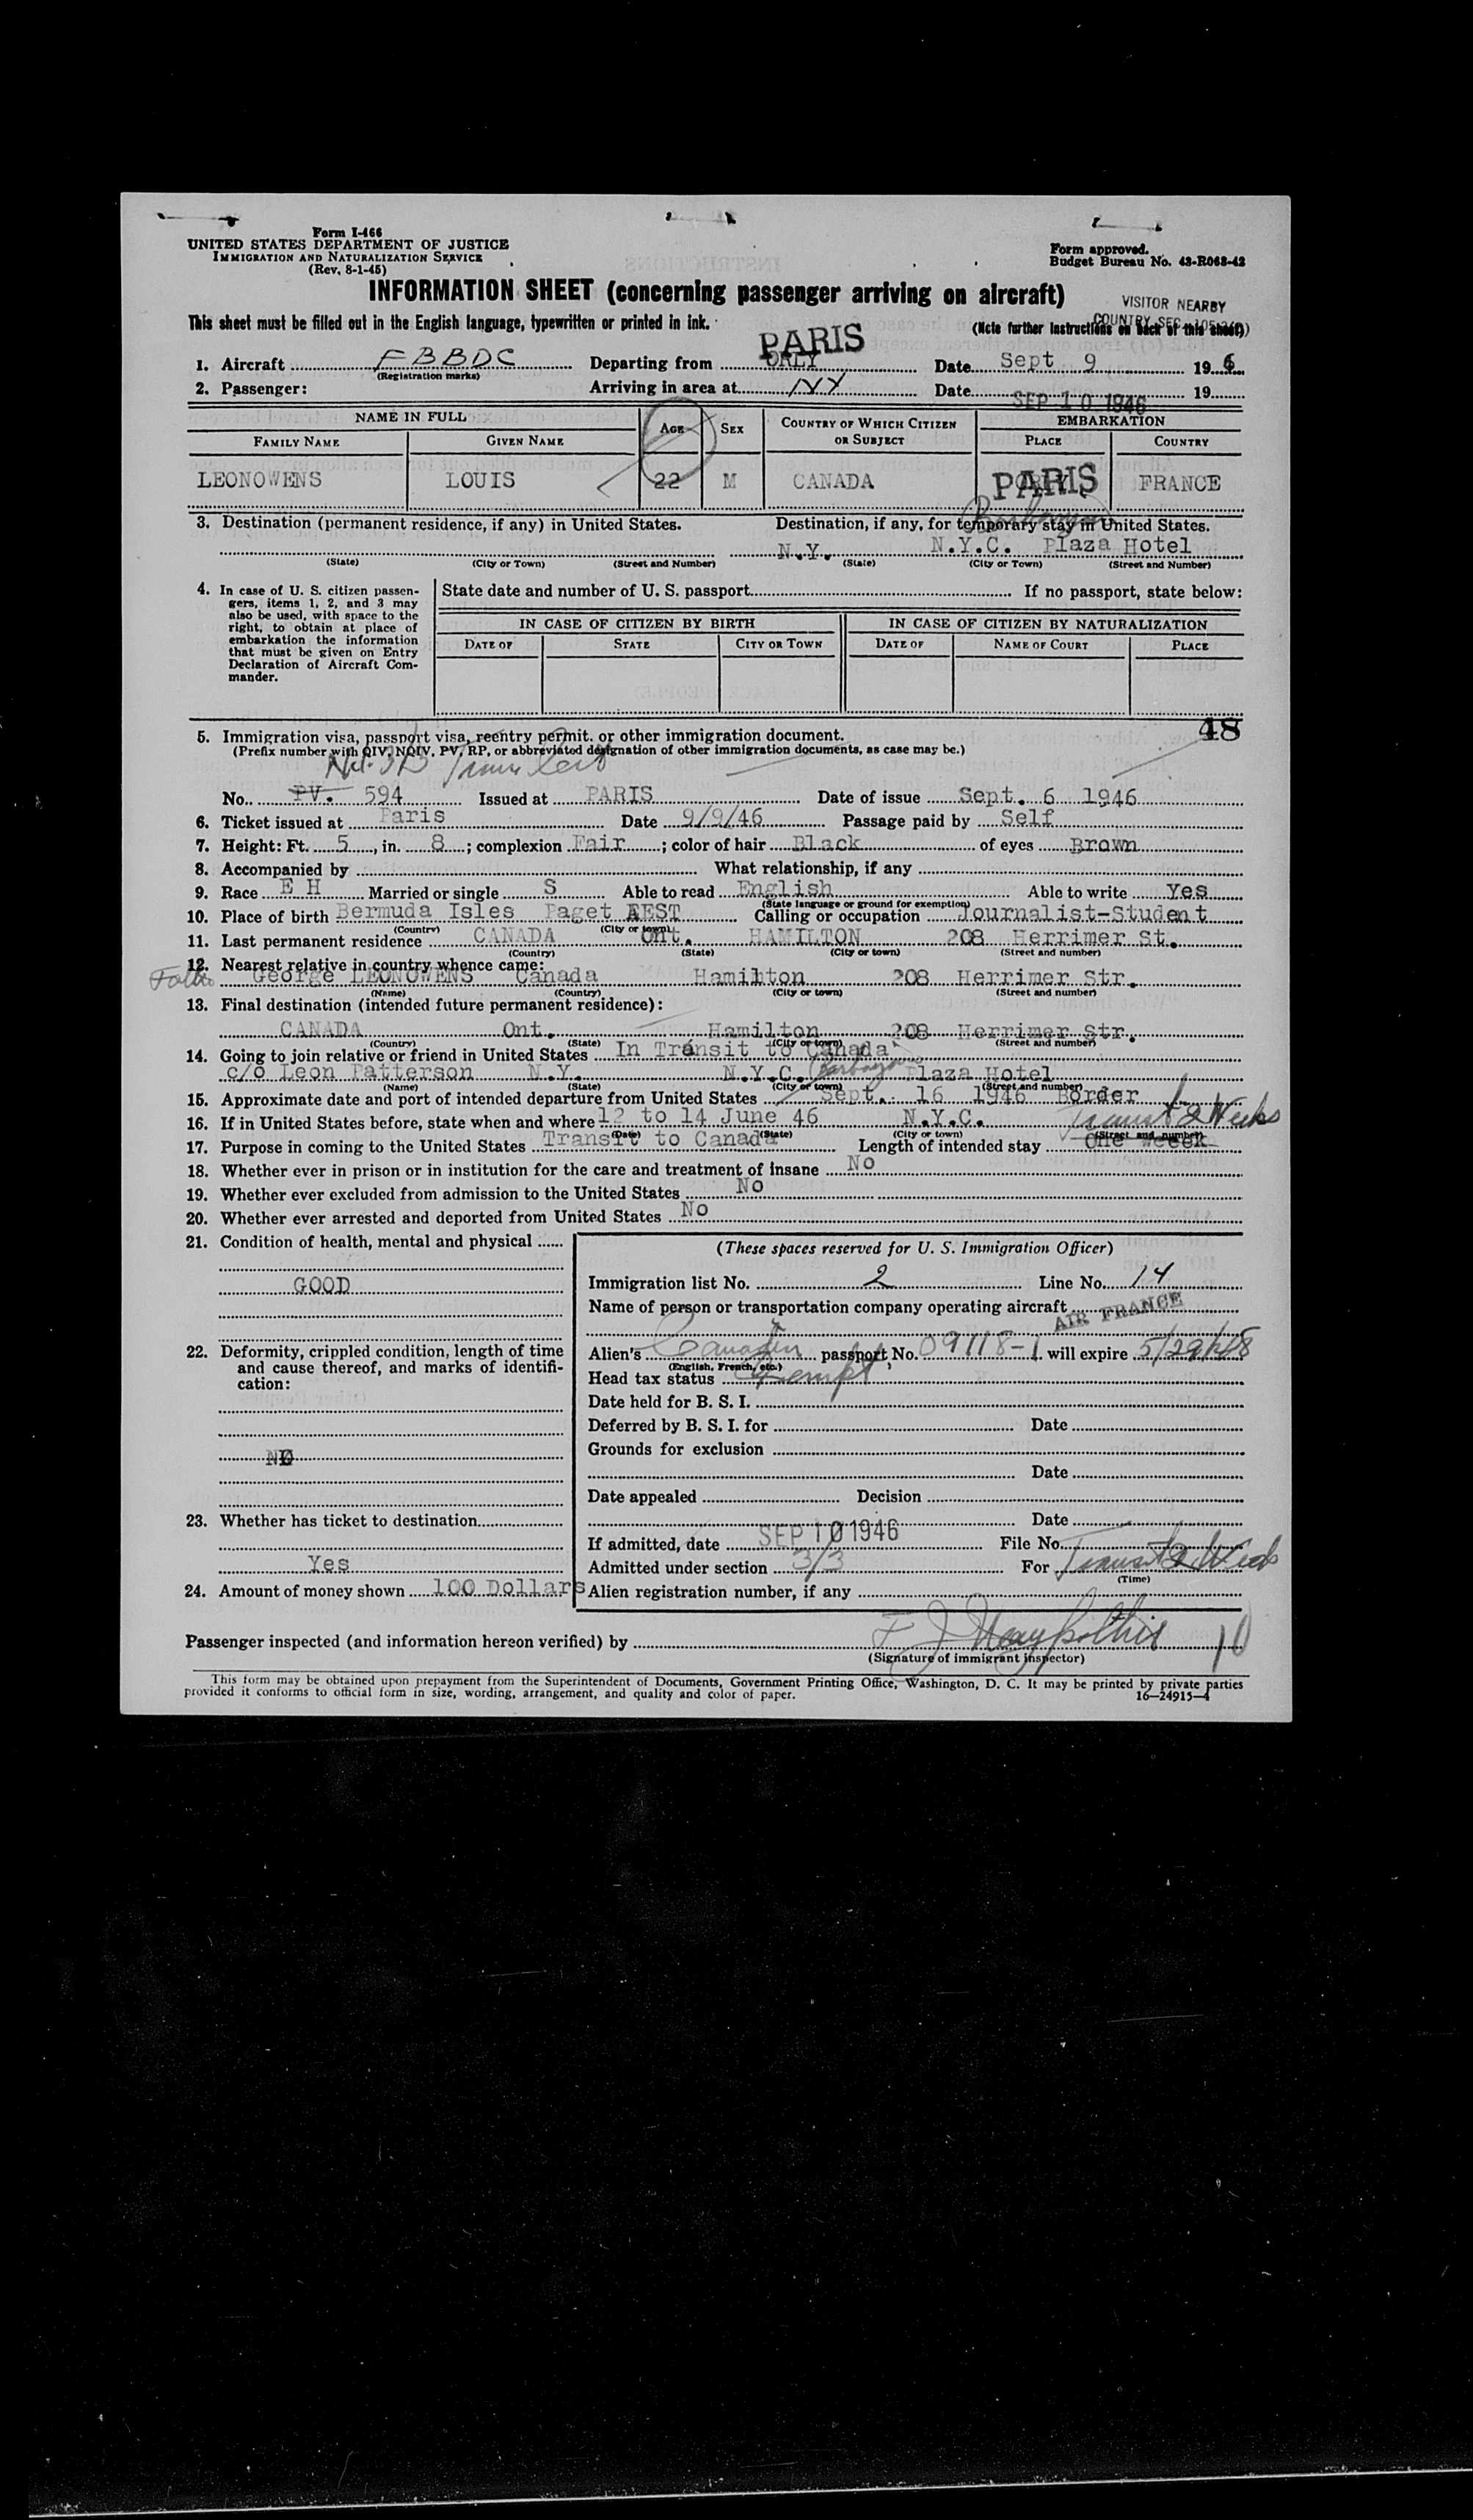 Form I-466
UNITED STATES DEPARTMENT OF JUSTICE
IMMIGRATION AND NATURALIZATION SERVICE
(Rev. 8-1-45)
Form approved.
Budget Bureau No. 43-R068-42
INFORMATION SHEET (concerning passenger arriving on aircraft)
VISITOR NEARBY
This sheet must be filled out in the English language, typewritten or printed in ink.
(Note further instructions on back of this sheet)
COUNTRY SEC.
PARIS
1. Aircraft FBBDC Departing from ORLY Date Sept 9 19 6
(Registration marks)
2. Passenger: Arriving in area at NY Date SEP 10 1946 19
NAME IN FULL AGE SEX COUNTRY OF WHICH CITIZEN OR SUBJECT EMBARKATION
FAMILY NAME GIVEN NAME PLACE COUNTRY
LEONOWENS LOUIS 22 M CANADA PARIS FRANCE
3. Destination (permanent residence, if any) in United States. Destination, if any, for temporary stay in United States.
N.Y. N.Y.C. Plaza Hotel
(State) (City or Town) (Street and Number) (State) (City or Town) (Street and Number)
4. In case of U. S. citizen passengers, items 1, 2, and 3 may also be used, with space to the right, to obtain at place of embarkation the information that must be given on Entry Declaration of Aircraft Commander.
State date and number of U. S. passport If no passport, state below:
IN CASE OF CITIZEN BY BIRTH IN CASE OF CITIZEN BY NATURALIZATION
DATE OF STATE CITY OR TOWN DATE OF NAME OF COURT PLACE
48
5. Immigration visa, passport visa, reentry permit, or other immigration document.
(Prefix number with QIV, NQIV, PV, RP, or abbreviated designation of other immigration documents, as case may be.)
No. PV. 594 Issued at PARIS Date of issue Sept. 6 1946
6. Ticket issued at Paris Date 9/9/46 Passage paid by Self
7. Height: Ft. 5, in. 8; complexion Fair; color of hair Black of eyes Brown
8. Accompanied by What relationship, if any
9. Race E H Married or single S Able to read English Able to write Yes
(State language or ground for exemption)
10. Place of birth Bermuda Isles Paget WEST Calling or occupation Journalist-Student
(Country) (City or town)
11. Last permanent residence CANADA Ont. HAMILTON 208 Herrimer St.
(Country) (State) (City or town) (Street and number)
12. Nearest relative in country whence came:
George LEONOWENS Canada Hamilton 208 Herrimer Str.
(Name) (Country) (City or town) (Street and number)
13. Final destination (intended future permanent residence):
CANADA Ont. Hamilton 208 Herrimer Str.
(Country) (State) (City or town) (Street and number)
14. Going to join relative or friend in United States In Transit to Canada
c/o Leon Patterson N.Y. N.Y.C. Plaza Hotel
(Name) (State) (City or town) (Street and number)
15. Approximate date and port of intended departure from United States Sept. 16 1946 Border
16. If in United States before, state when and where 12 to 14 June 46 N.Y.C. Transit 2 Weeks
(Date) (State) (City or town) (Street and number)
17. Purpose in coming to the United States Transit to Canada Length of intended stay One weeek
18. Whether ever in prison or in institution for the care and treatment of insane No
19. Whether ever excluded from admission to the United States No
20. Whether ever arrested and deported from United States No
21. Condition of health, mental and physical
GOOD
22. Deformity, crippled condition, length of time and cause thereof, and marks of identification:
NO
23. Whether has ticket to destination
Yes
24. Amount of money shown 100 Dollars
(These spaces reserved for U. S. Immigration Officer)
Immigration list No. 2 Line No. 14
Name of person or transportation company operating aircraft AIR FRANCE
Alien's Canadian passport No. 09118-1 will expire 5/29/48
(English, French, etc.)
Head tax status Exempt
Date held for B. S. I.
Deferred by B. S. I. for Date
Grounds for exclusion
Date
Date appealed Decision
Date
If admitted, date SEP 10 1946 File No.
Admitted under section 3/3 For Transit 2 Weeks
(Time)
Alien registration number, if any
Passenger inspected (and information hereon verified) by 10
(Signature of immigrant inspector)
This form may be obtained upon prepayment from the Superintendent of Documents, Government Printing Office, Washington, D. C. It may be printed by private parties
provided it conforms to official form in size, wording, arrangement, and quality and color of paper. 16—24915-4